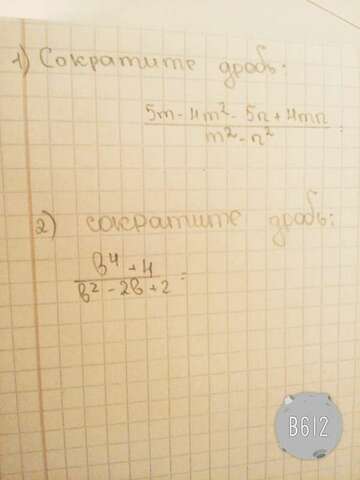 1) Сократите дробь:
5m - 4m² - 5n + 4mn
m² - n²
2) сократите дробь:
b⁴ + 4
b² - 2b + 2 =
B612